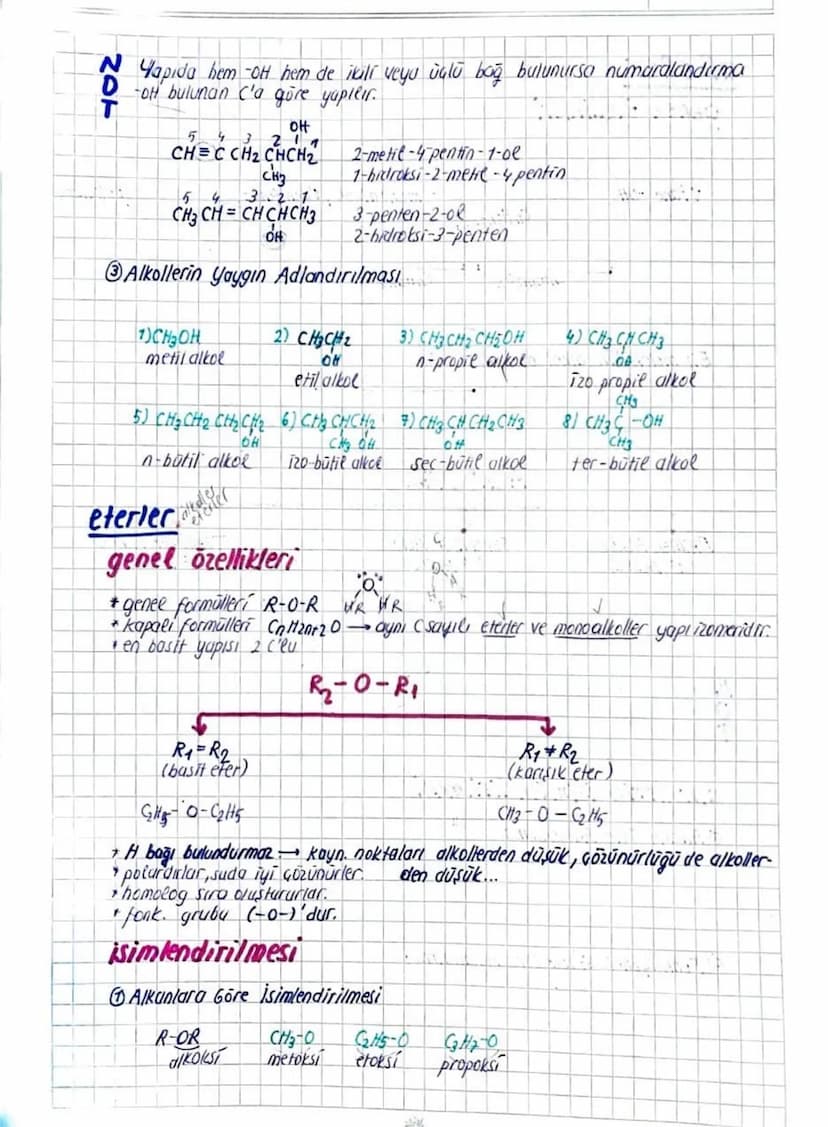 NOT
Yapıda hem -OH hem de ikili veya üçlü bağ bulunursa numaralandırma
-OH bulunan C'a göre yapılır.
OH
5 4 3 2 1
CH≡C CH2 CHCH2
CH3
2-metil-4-pentin-1-ol
1-hidroksi-2-metil-4pentin
5 4 3 2 1
CH3 CH = CH CH CH3
OH
3-penten-2-ol
2-hidroksi-3-penten
③ Alkollerin Yaygın Adlandırılması
1) CH3OH
metil alkol
2) CH3CH2
OH
etil alkol
3) CH3CH2 CH2OH
n-propil alkol
4) CH3 CH CH3
OH
izo propil alkol
5) CH3CH2 CH2CH2
OH
n-bütil alkol
6) CH3 CHCH2
CH3 OH
izo-bütil alkol
7) CH3 CH CH2 CH3
OH
sec-bütil alkol
CH3
8) CH3 C -OH
CH3
ter-bütil alkol
eterler
alkoller
eterler
genel özellikleri
* genel formülleri R-O-R
O
R R
* kapalı formülleri CnH2n+2O → aynı C sayılı eterler ve monoalkoller yapı izomeridir.
* en basit yapısı 2 C'lu
R2-O-R1
R1=R2
(basit eter)
C2H5-O-C2H5
R1≠R2
(karışık eter)
CH3-O-C2H5
* H bağı bulundurmaz → kayn. noktaları alkollerden düşük, çözünürlüğü de alkoller-
den düşük...
* polardırlar, suda iyi çözünürler.
* homolog sıra oluştururlar.
* fonk. grubu (-O-)'dur.
isimlendirilmesi
① Alkanlara Göre İsimlendirilmesi
R-OR
alkoksi
CH3-O
metoksi
C2H5-O
etoksi
C3H7-O
propoksi